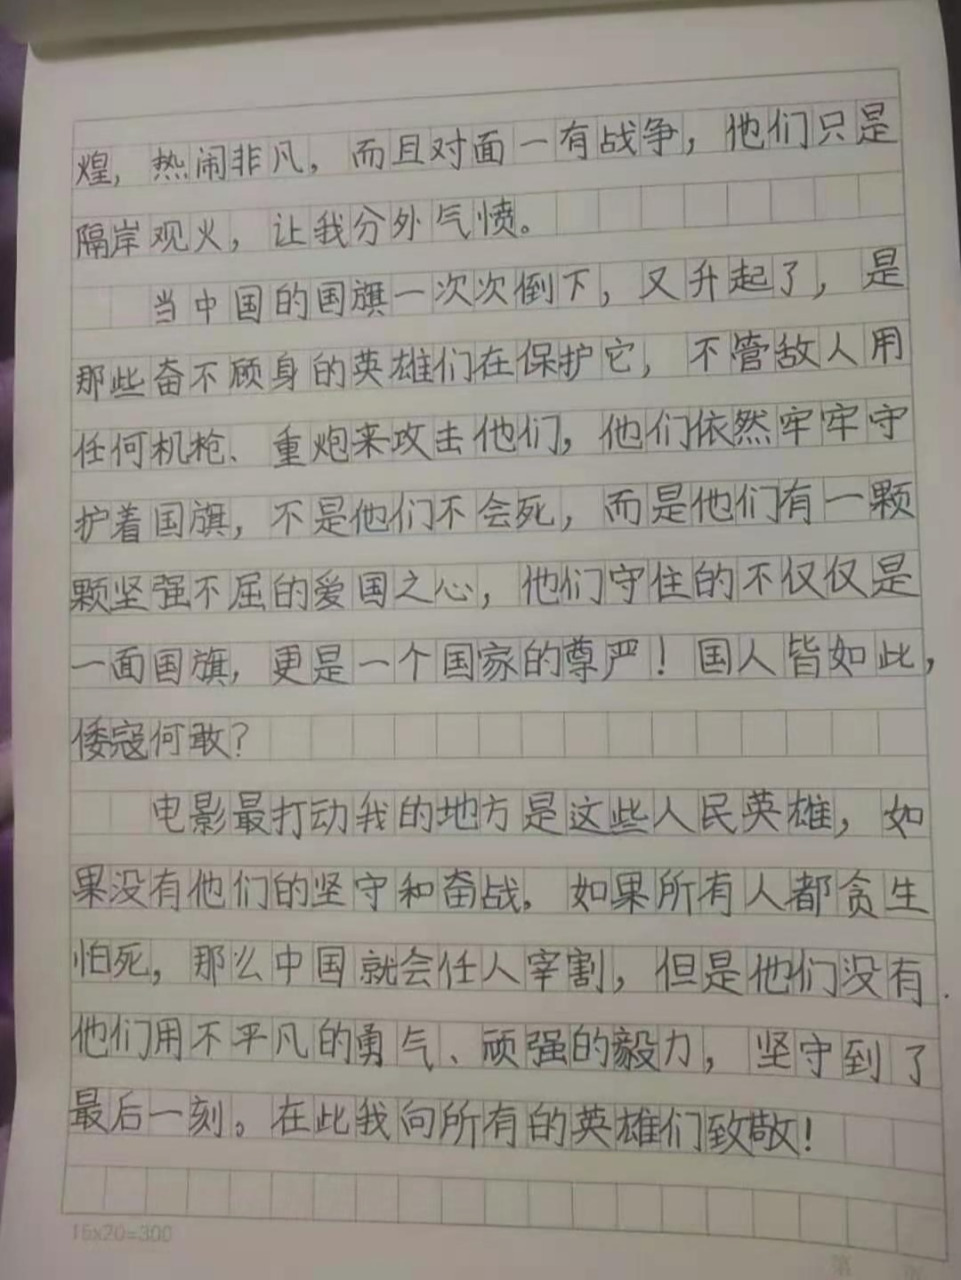 煌，热闹非凡，而且对面一有战争，他们只是
隔岸观火，让我分外气愤。
当中国的国旗一次次倒下，又升起了，是
那些奋不顾身的英雄们在保护它，不管敌人用
任何机枪、重炮来攻击他们，他们依然牢牢守
护着国旗，不是他们不会死，而是他们有一颗
颗坚强不屈的爱国之心，他们守住的不仅仅是
一面国旗，更是一个国家的尊严！国人皆如此，
倭寇何敢？
电影最打动我的地方是这些人民英雄，如
果没有他们的坚守和奋战，如果所有人都贪生
怕死，那么中国就会任人宰割，但是他们没有.
他们用不平凡的勇气、顽强的毅力，坚守到了
最后一刻。在此我向所有的英雄们致敬！
15x20=300
第